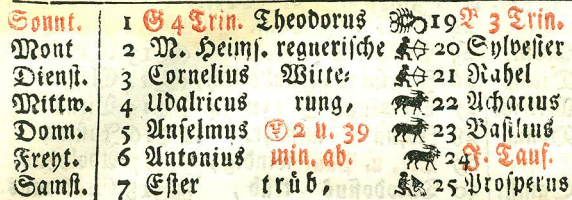 Sonnt. 1 G 4 Trin. Theodorus 19 P 3 Trin.
Mont 2 M. Heims. regnerische 20 Sylvester
Dienst. 3 Cornelius Witte- 21 Rahel
Mittw. 4 Udalricus rung, 22 Achatius
Donn. 5 Anselmus 2 u. 39 23 Basilius
Freyt. 6 Antonius min. ab. 24 J. Tauf.
Samst. 7 Ester trüb, 25 Prosperus